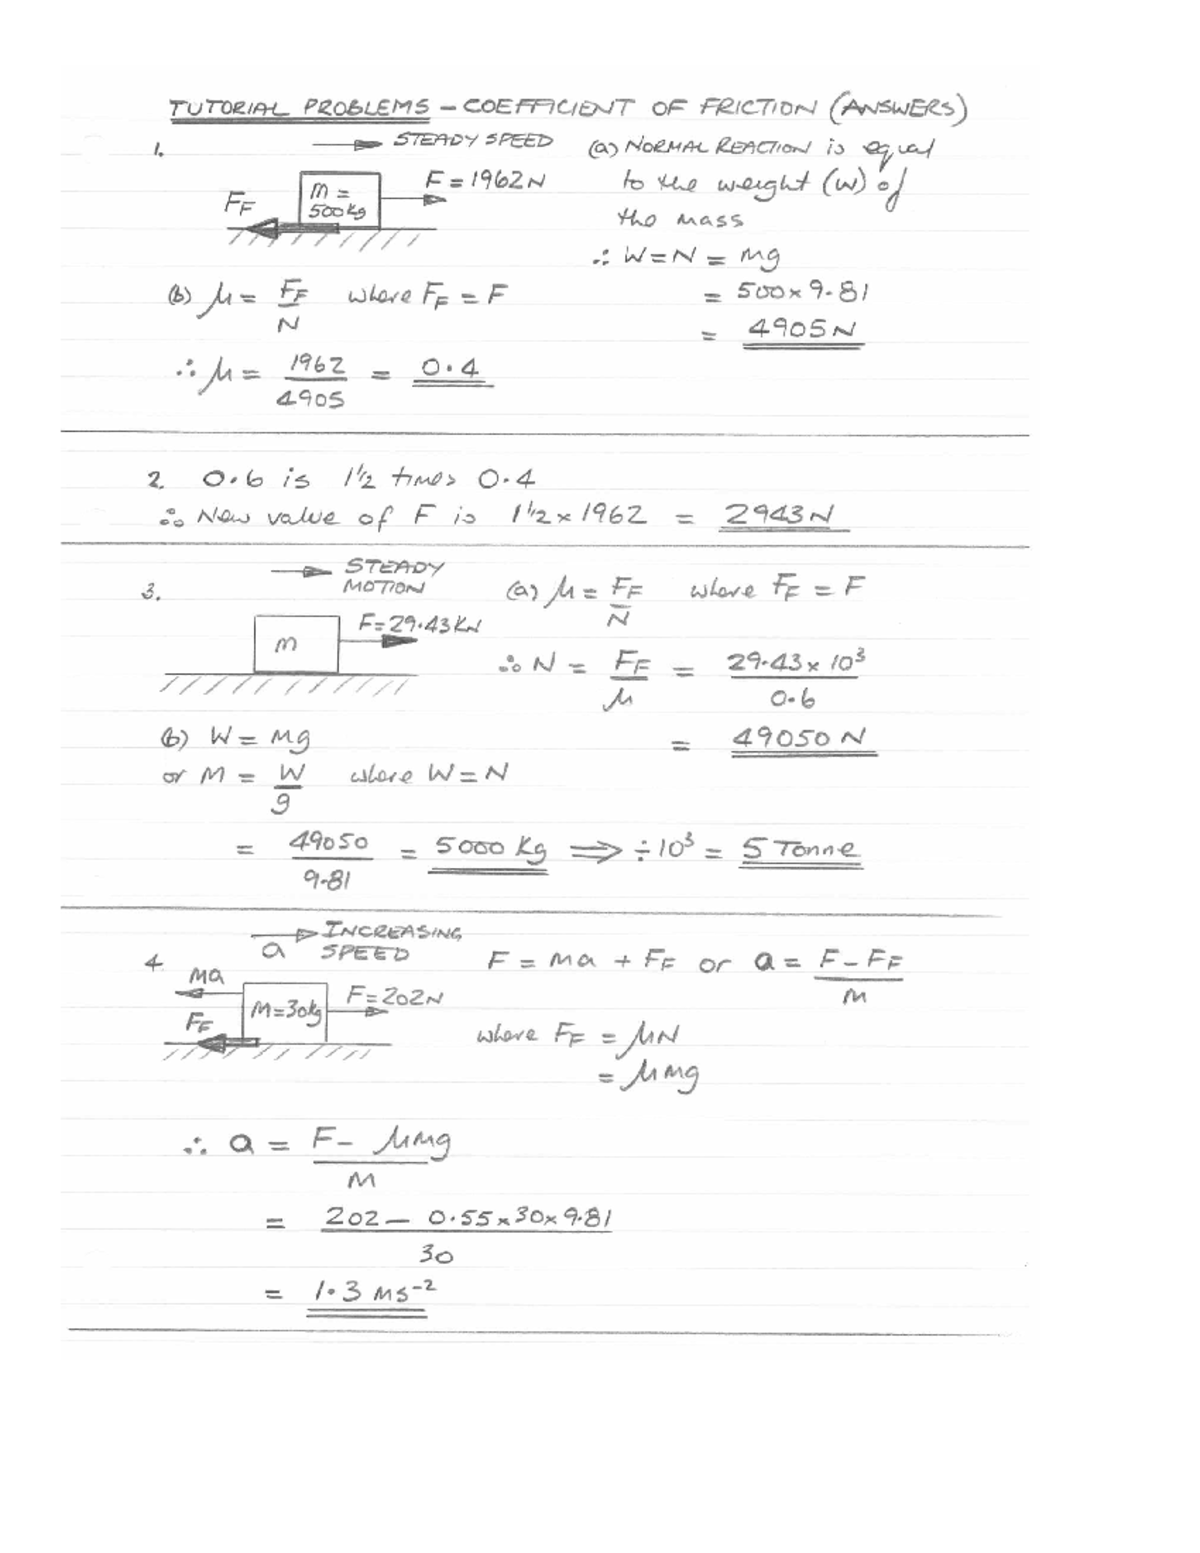 TUTORIAL PROBLEMS – COEFFICIENT OF FRICTION (ANSWERS)
1.
STEADY SPEED
m = 500kg
F = 1962N
FF
(a) NORMAL REACTION is equal
to the weight (W) of
the mass
∴ W = N = mg
= 500 × 9.81
= 4905 N
(b) μ = FF/N where FF = F
∴ μ = 1962/4905 = 0.4
2. 0.6 is 1½ times 0.4
∴ New value of F is 1½ × 1962 = 2943 N
3.
STEADY
MOTION
m
F = 29.43 KN
(a) μ = FF/N where FF = F
∴ N = FF/μ = 29.43 × 10³/0.6
= 49050 N
(b) W = mg
or M = W/g where W = N
= 49050/9.81 = 5000 Kg ⇒ ÷ 10³ = 5 Tonne
4.
a
INCREASING
SPEED
Ma
FF
M = 30kg
F = 202N
F = ma + FF or a = F – FF/M
where FF = μN
= μmg
∴ a = F – μmg/M
= 202 – 0.55 × 30 × 9.81/30
= 1.3 ms⁻²